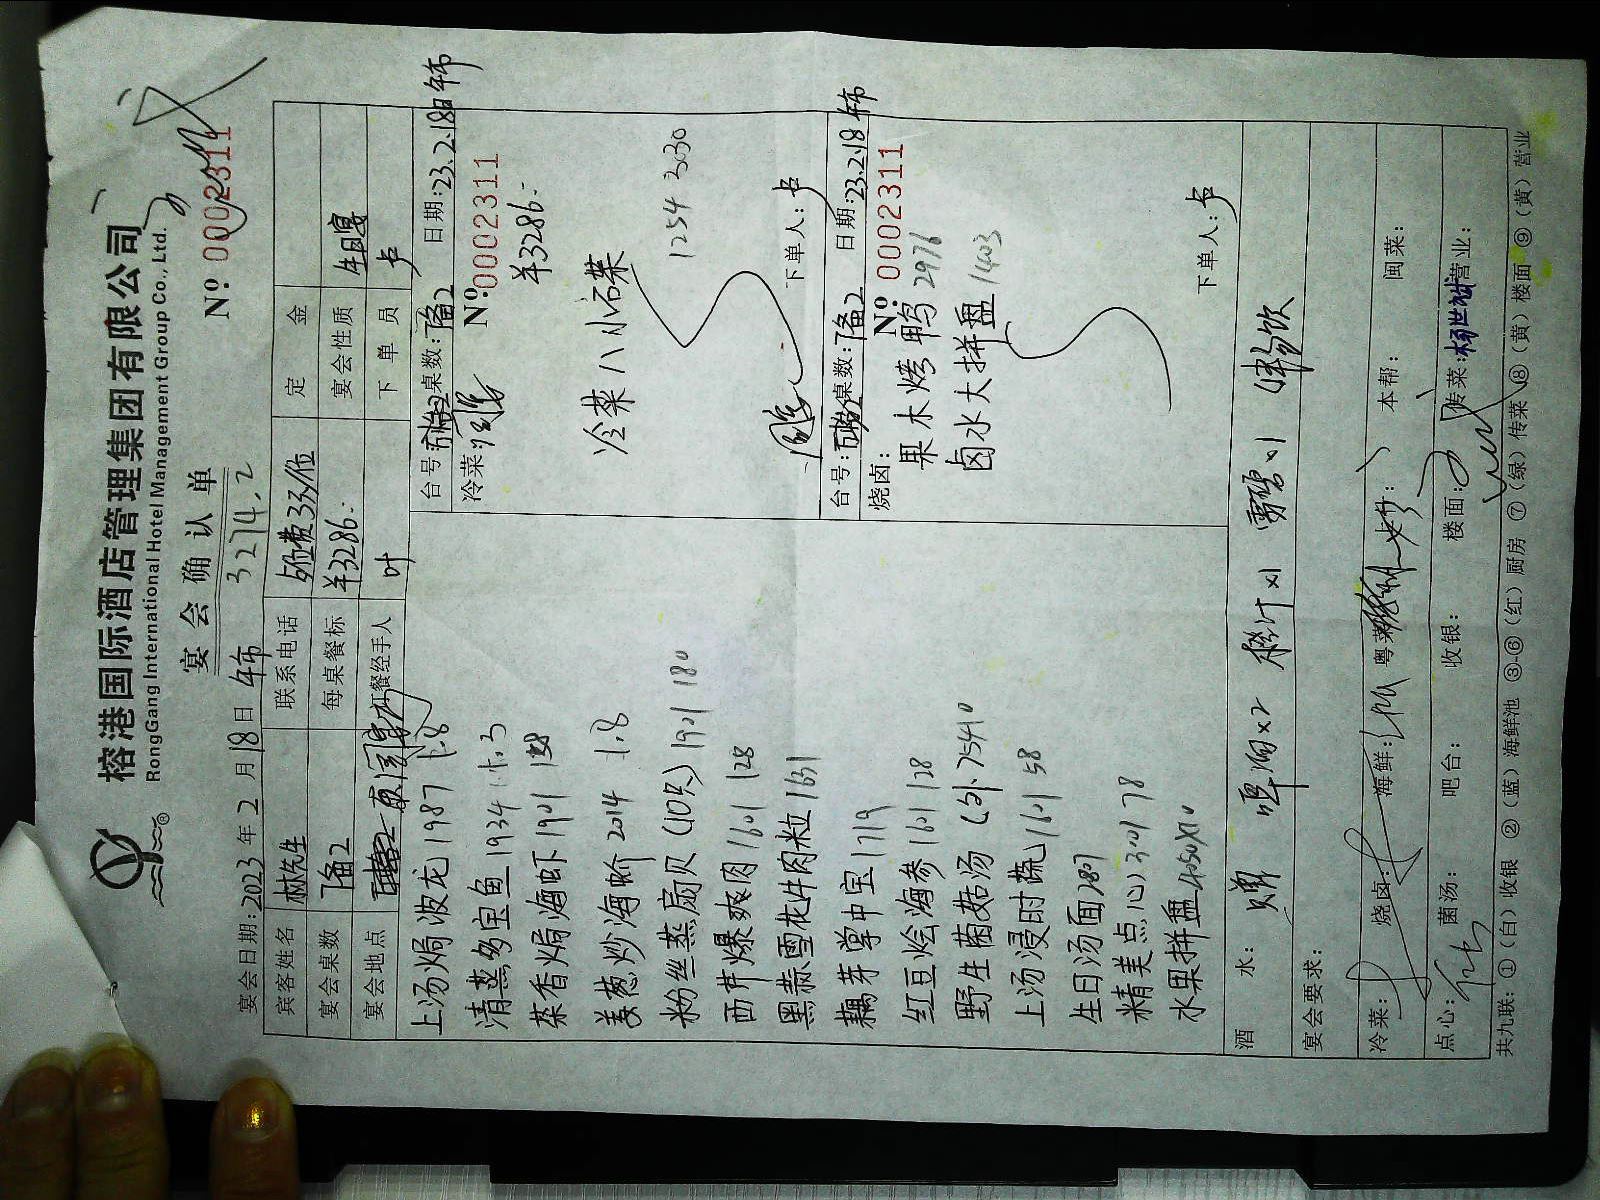 榕港国际酒店管理集团有限公司
RongGang International Hotel Management Group Co., Ltd.
宴会确认单
№ 0002311
宴会日期:2023年2月18日 3274.2
宾客姓名 林先生 联系电话 定金
宴会桌数 1备2 每桌餐标 羊3286- 宴会性质 生日宴
宴会地点 订餐经手人 叶 下单员 卢
上汤焗波龙 1987
清蒸多宝鱼 1934
茶香焗海虾 1901 128
姜葱炒海蛏 2014
粉丝蒸扇贝(10只) 1901 180
西芹爆爽肉 1601 128
黑蒜雪花牛肉粒 1631
藕芽掌中宝 1719
红豆烩海参 1601 128
野生菌菇汤
上汤浸时蔬 1601 58
生日汤面 2801
精美点心 3001 78
水果拼盘
台号: 桌数:1备2 日期:23.2.18
冷菜: № 0002311
羊3286-
冷菜八小碟 1254 3330
下单人:卢
台号: 桌数:1备2 日期:23.2.18
烧卤: № 0002311
果木烤鸭 2976
卤水大拼盘 1403
下单人:卢
酒水: 赠 啤酒x2 橙汁x1 雪碧x1
宴会要求:
冷菜: 烧卤: 海鲜: 粤菜: 本帮: 闽菜:
点心: 菌汤: 吧台: 收银: 楼面: 传菜: 营业:
共九联: ①(白)收银 ②(蓝)海鲜池 ③-⑥(红)厨房 ⑦(绿)传菜 ⑧(黄)楼面 ⑨(黄)营业